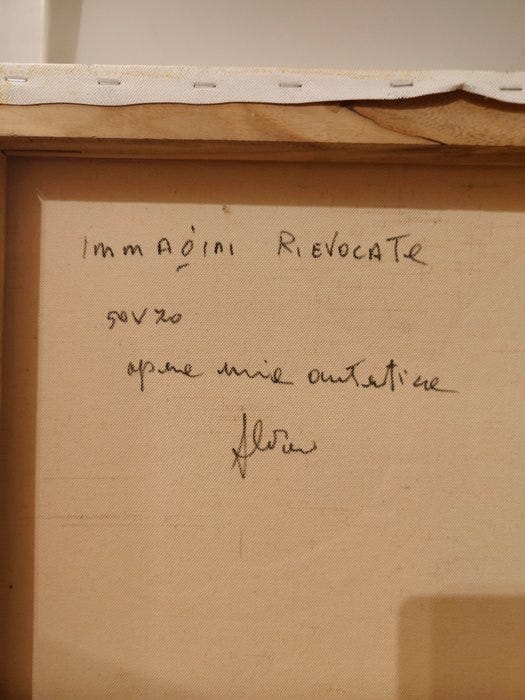 IMMAGINI RIEVOCATE
50 x 70
opera mia autentica